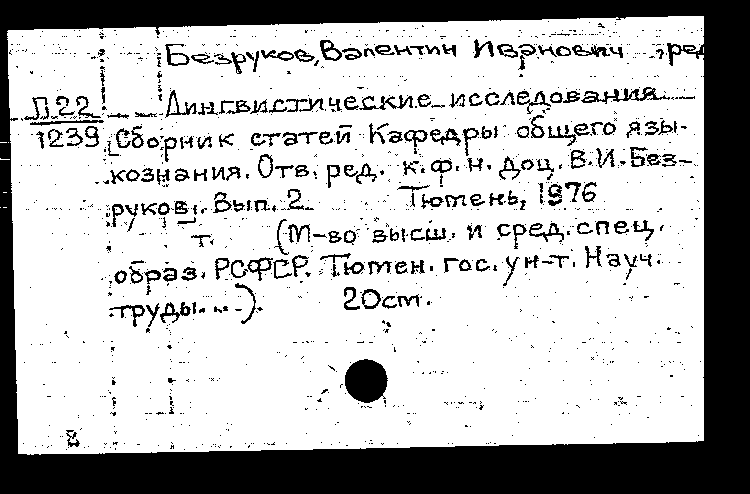 Безруков, Валентин Иванович, ред
П22 Лингвистические исследования
1239 [Сборник статей Кафедры общего язы-
кознания. Отв. ред. к.ф.н. доц. В.И. Без-
руков]. Вып. 2 Тюмень, 1976
т. (М-во высш. и сред. спец.
образ. РСФСР. Тюмен. гос. ун-т. Науч.
труды...). 20cm.